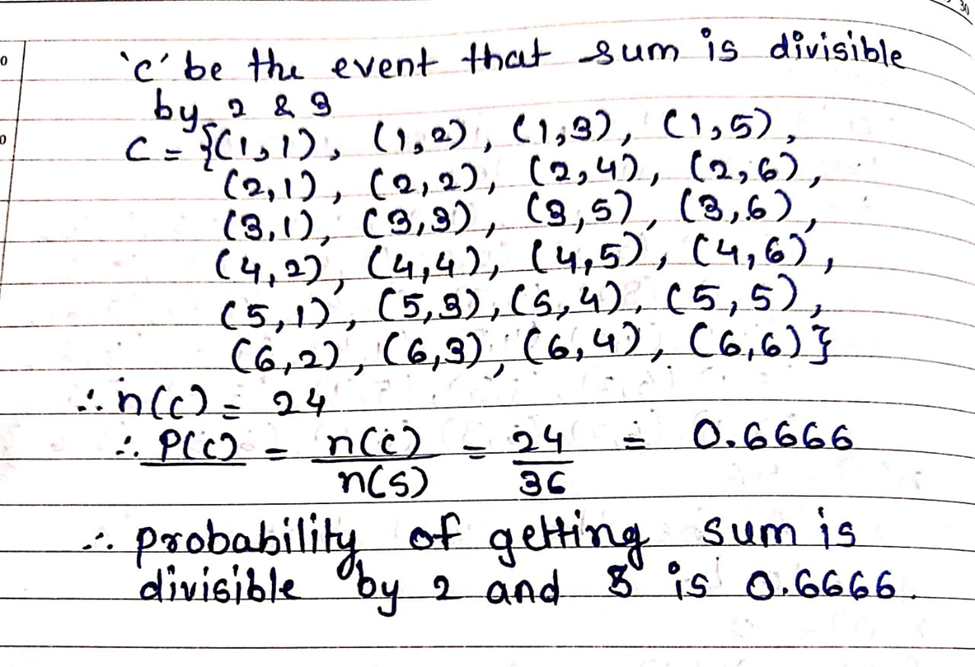 'c' be the event that sum is divisible
by 2 & 3
C = {(1,1), (1,2), (1,3), (1,5),
(2,1), (2,2), (2,4), (2,6),
(3,1), (3,3), (3,5), (3,6),
(4,2), (4,4), (4,5), (4,6),
(5,1), (5,3), (5,4), (5,5),
(6,2), (6,3), (6,4), (6,6)}
∴ n(c) = 24
∴ P(c) = n(c)/n(s) = 24/36 = 0.6666
∴ probability of getting sum is
divisible by 2 and 3 is 0.6666.